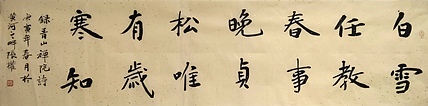 白雪
任教
春事
晚貞
松唯
有歲
寒知
錄青山禪院詩
戊寅年春月於
黃河之畔張權